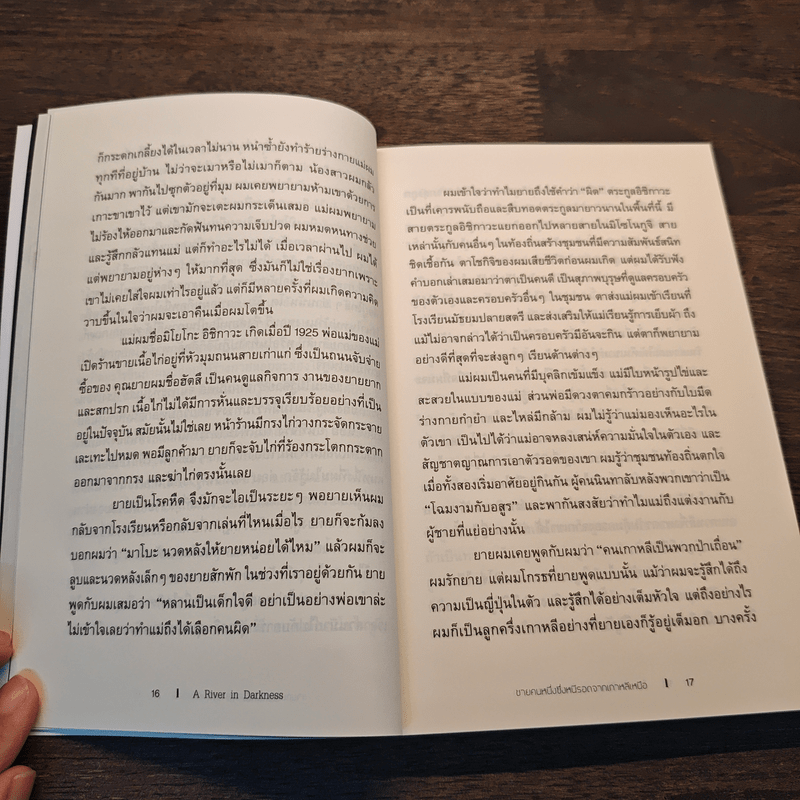 ก็กระดกเกลี้ยงได้ในเวลาไม่นาน หน้าซ้ำยังทำร้ายร่างกายแม่ผม
ทุกทีที่อยู่บ้าน ไม่ว่าจะเมาหรือไม่เมาก็ตาม น้องสาวผมกลัว
กันมาก พากันไปซุกตัวอยู่ที่มุม ผมเคยพยายามห้ามเขาด้วยการ
เกาะขาเขาไว้ แต่เขามักจะเตะผมกระเด็นเสมอ แม่ผมพยายาม
ไม่ร้องไห้ออกมาและกัดฟันทนความเจ็บปวด ผมหมดหนทางช่วย
และรู้สึกกลัวแทนแม่ แต่ก็ทำอะไรไม่ได้ เมื่อเวลาผ่านไป ผมได้
แต่พยายามอยู่ห่างๆ ให้มากที่สุด ซึ่งมันก็ไม่ใช่เรื่องยากเพราะ
เขาไม่เคยใส่ใจผมเท่าไรอยู่แล้ว แต่ก็มีหลายครั้งที่ผมเกิดความคิด
วาบขึ้นในใจว่าผมจะเอาคืนเมื่อผมโตขึ้น
แม่ผมชื่อมิโยโกะ อิชิกาวะ เกิดเมื่อปี 1925 พ่อแม่ของแม่
เปิดร้านขายเนื้อไก่อยู่ที่หัวมุมถนนสายเก่าแก่ ซึ่งเป็นถนนจับจ่าย
ซื้อของ คุณยายผมชื่อฮัตสึ เป็นคนดูแลกิจการ งานของยายยาก
และสกปรก เนื้อไก่ไม่ได้มีการหั่นและบรรจุเรียบร้อยอย่างที่เป็น
อยู่ในปัจจุบัน สมัยนั้นไม่ใช่เลย หน้าร้านมีกรงไก่วางกระจัดกระจาย
และเกะกะไปหมด พอมีลูกค้ามา ยายก็จะจับไก่ที่ร้องกระโตกกระตาก
ออกมาจากกรง และฆ่าไก่ตรงนั้นเลย
ยายเป็นโรคหืด จึงมักจะไอเป็นระยะๆ พอยายเห็นผม
กลับจากโรงเรียนหรือกลับจากเล่นที่ไหนเมื่อไร ยายก็จะก้มลง
บอกผมว่า “มาโบะ นวดหลังให้ยายหน่อยได้ไหม” แล้วผมก็จะ
ลูบและนวดหลังเล็กๆ ของยายสักพัก ในช่วงที่เราอยู่ด้วยกัน ยาย
พูดกับผมเสมอว่า “หลานเป็นเด็กใจดี อย่าเป็นอย่างพ่อเขาล่ะ
ไม่เข้าใจเลยว่าทำแม่ถึงได้เลือกคนผิด”
16 | A River in Darkness
ผมเข้าใจว่าทำไมยายถึงใช้คำว่า “ผิด” ตระกูลอิชิกาวะ
เป็นที่เคารพนับถือและสืบทอดตระกูลมายาวนานในพื้นที่นี้ มี
สายตระกูลอิชิกาวะแยกออกไปหลายสายในมิโซโนกูจิ สาย
เหล่านั้นกับคนอื่นๆ ในท้องถิ่นสร้างชุมชนที่มีความสัมพันธ์สนิท
ชิดเชื้อกัน ตาโชกิจิของผมเสียชีวิตก่อนผมเกิด แต่ผมได้รับฟัง
คำบอกเล่าเสมอมาว่าตาเป็นคนดี เป็นสุภาพบุรุษที่ดูแลครอบครัว
ของตัวเองและครอบครัวอื่นๆ ในชุมชน ตาส่งแม่ผมเข้าเรียนที่
โรงเรียนมัธยมปลายสตรี และส่งเสริมให้แม่เรียนรู้การเย็บผ้า ถึง
แม้ไม่อาจกล่าวได้ว่าเป็นครอบครัวมีอันจะกิน แต่ตาก็พยายาม
อย่างดีที่สุดที่จะส่งลูกๆ เรียนด้านต่างๆ
แม่ผมเป็นคนที่มีบุคลิกเข้มแข็ง แม่มีใบหน้ารูปไข่และ
สะสวยในแบบของแม่ ส่วนพ่อมีดวงตาคมกร้าวอย่างกับใบมีด
ร่างกายกำยำ และไหล่มีกล้าม ผมไม่รู้ว่าแม่มองเห็นอะไรใน
ตัวเขา เป็นไปได้ว่าแม่อาจหลงเสน่ห์ความมั่นใจในตัวเอง และ
สัญชาตญาณการเอาตัวรอดของเขา ผมรู้ว่าชุมชนท้องถิ่นตกใจ
เมื่อทั้งสองเริ่มอาศัยอยู่กินกัน ผู้คนนินทาลับหลังพวกเขาว่าเป็น
“โฉมงามกับอสูร” และพากันสงสัยว่าทำไมแม่ถึงแต่งงานกับ
ผู้ชายที่แย่อย่างนั้น
ยายผมเคยพูดกับผมว่า “คนเกาหลีเป็นพวกป่าเถื่อน”
ผมรักยาย แต่ผมโกรธที่ยายพูดแบบนั้น แม้ว่าผมจะรู้สึกได้ถึง
ความเป็นญี่ปุ่นในตัว และรู้สึกได้อย่างเต็มหัวใจ แต่ถึงอย่างไร
ผมก็เป็นลูกครึ่งเกาหลีอย่างที่ยายเองก็รู้อยู่เต็มอก บางครั้ง
ชายคนหนึ่งซึ่งหนีรอดจากเกาหลีเหนือ | 17